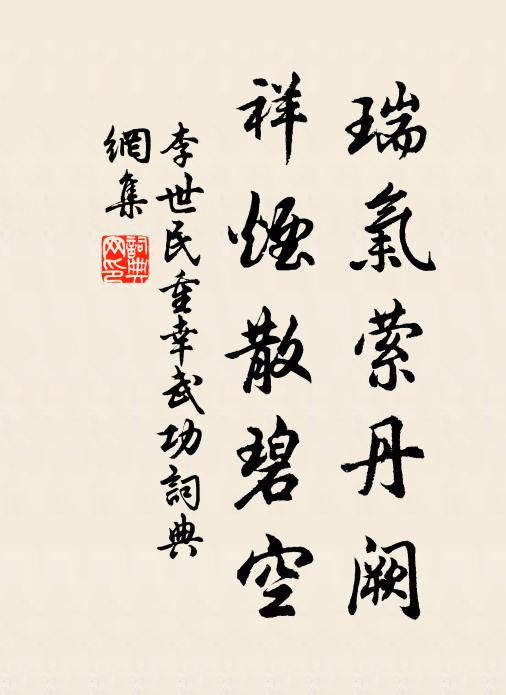 瑞氣萦丹阙
祥煙散碧空
李世民重幸武功詞典
網集
詞典网印